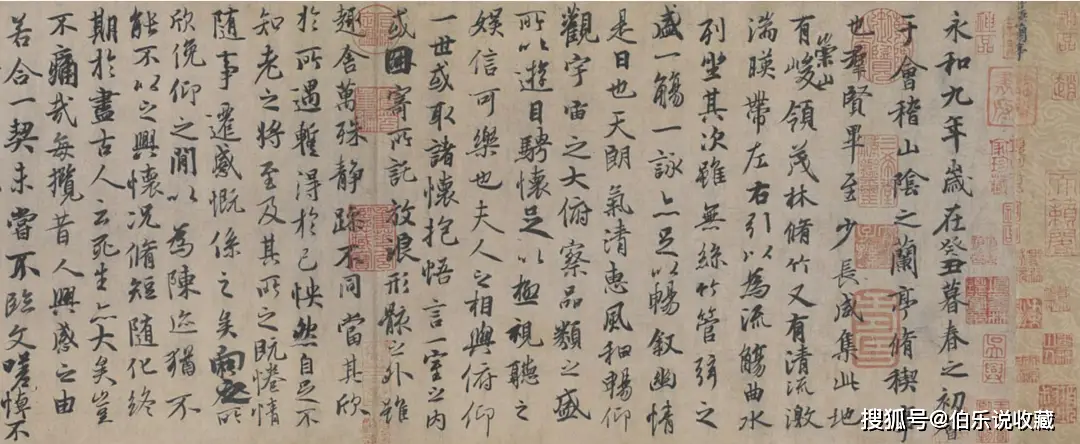 永和九年歲在癸丑暮春之初
于會稽山陰之蘭亭脩稧
也羣賢畢至少長咸集此地
有崇山峻領茂林脩竹又有清流激
湍暎帶左右引以為流觴曲水
列坐其次雖無絲竹管弦之
盛一觴一詠亦足以暢叙幽情
是日也天朗氣清惠風和暢仰
觀宇宙之大俯察品類之盛
所以遊目騁懷足以極視聽之
娛信可樂也夫人之相與俯仰
一世或取諸懷抱悟言一室之內
或因寄所託放浪形骸之外雖
趣舍萬殊静躁不同當其欣
於所遇暫得於己怏然自足不
知老之將至及其所之既惓情
隨事遷感慨係之矣向之所
欣俛仰之閒以為陳迹猶不
能不以之興懷況脩短隨化終
期於盡古人云死生亦大矣豈
不痛哉每攬昔人興感之由
若合一契未嘗不臨文嗟悼不
搜狐号@伯乐说收藏